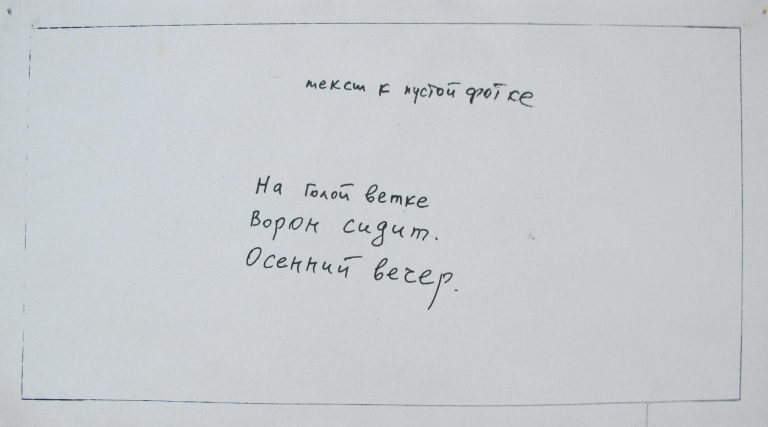 текст к пустой фотке
На голой ветке
Ворон сидит.
Осенний вечер.